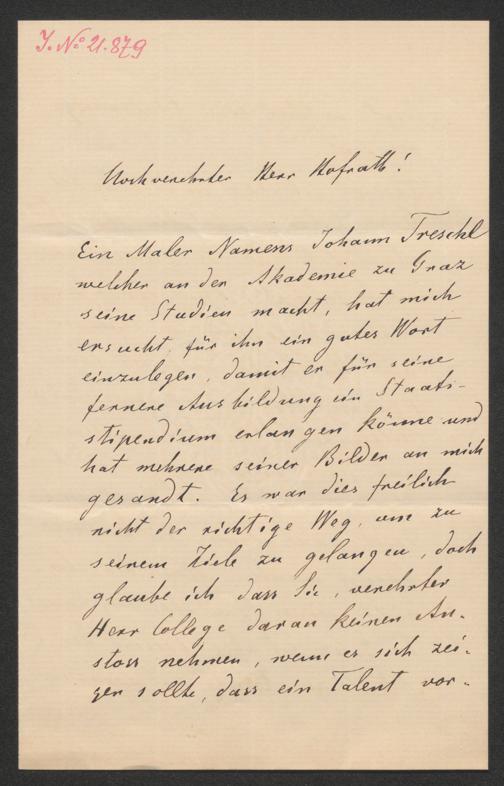 J. No 21.879
Hochverehrter Herr Hofrath!
Ein Maler Namens Johann Treschl
welcher an der Akademie zu Graz
seine Studien macht, hat mich
ersucht, für ihn ein gutes Wort
einzulegen, damit er für seine
fernere Ausbildung ein Staats-
stipendium erlangen könne und
hat mehrere seiner Bilder an mich
gesandt. Es war dies freilich
nicht der richtige Weg, um zu
seinem Ziele zu gelangen, doch
glaube ich dass Sie, verehrter
Herr College daran keinen An-
stoss nehmen, wenn es sich zei-
gen sollte, dass ein Talent vor-